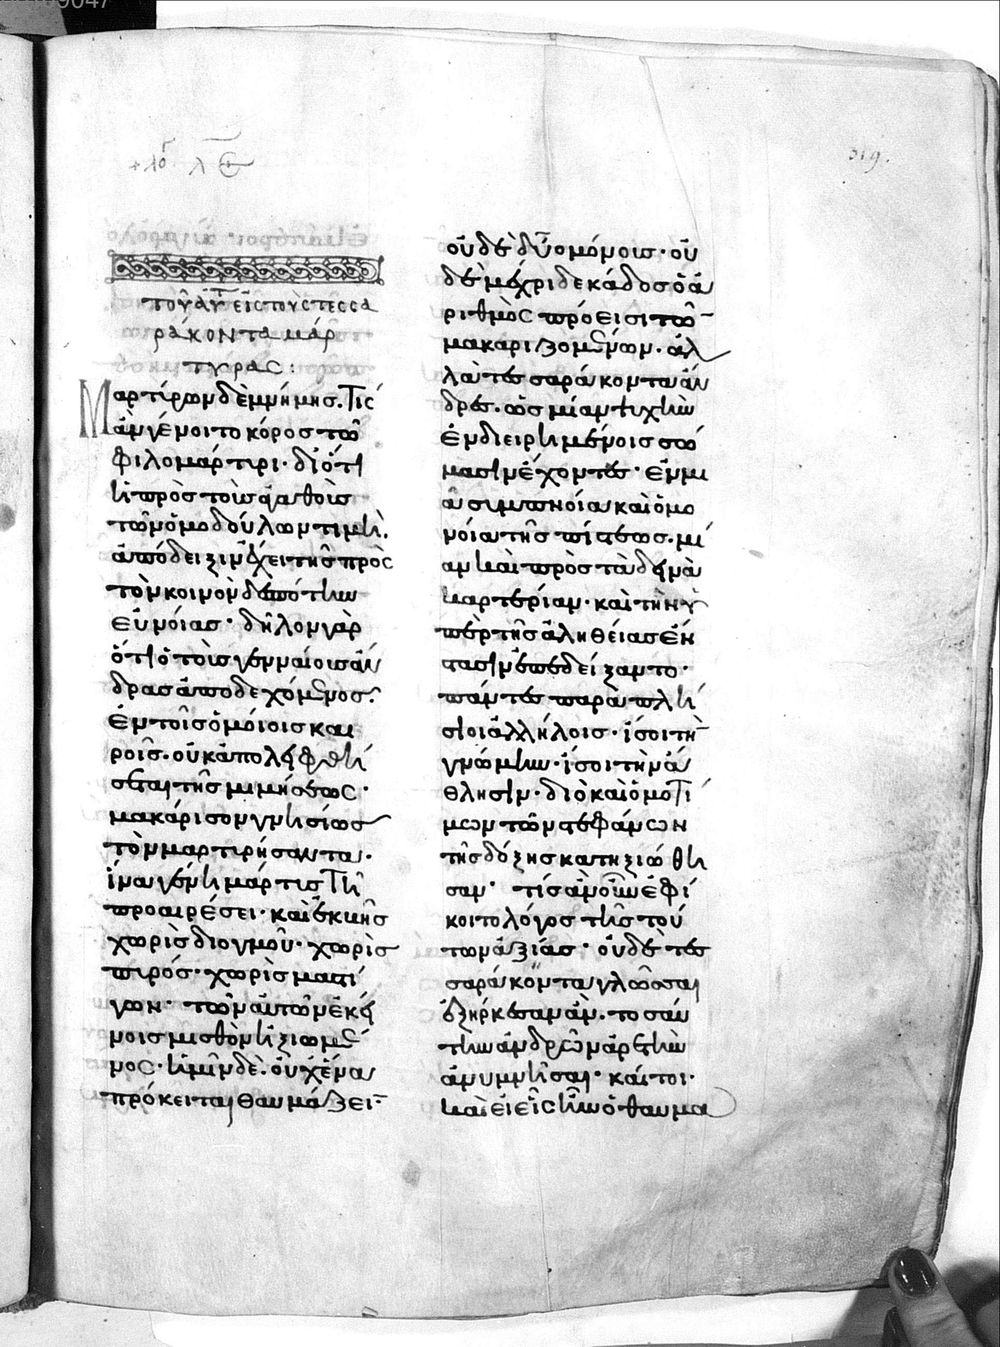 + λο´ λε
319.
τοῦ αὐτ εἰς τοὺς τεσσα
ράκοντα μάρ
τυρας:
Μαρτύρων δὲ μνήμης. Τίς
ἂν γένοιτο κόρος τῶ
φιλομάρτυρι· διότι
ἡ πρὸς τοὺς ἀγαθοὺς
τῶν ὁμοδούλων τιμὴ.
ἀπόδειξιν ἔχει τῆς πρὸς
τὸν κοινὸν δεσπότην
εὐνοίας· δῆλον γὰρ
ὅτι ὁ τοὺς γενναίους ἄν
δρας ἀποδεχόμενος.
ἐν τοῖς ὁμοίοις και
ροῖς. οὐκ ἀπολειφθή
σεται τῆς μιμήσεως·
μακάρισον γνησίως
τὸν μαρτυρήσαντα.
ἵνα γένη μάρτυς τῆ
προαιρέσει· καὶ ἐκβῆς
χωρὶς διογμοῦ· χωρὶς
πυρός· χωρὶς μαστί
γων· τῶν αὐτῶν ἐκεί
νοις μισθὸν ἠξιωμέ
νος· ἡμῖν δὲ. οὐχ ἕνα
πρόκειται θαυμάζειν
οὐδὲ δύο μόνους· οὐ
δὲ μέχρι δεκάδος ὁ ἀ
ριθμὸς πρόεισι τῶν
μακαριζομένων. ἀλ
λὰ τεσσαράκοντα ἄν
δρες. ὡς μίαν ψυχὴν
ἐν διειρημένοις σώ
μασιν ἔχοντες· ἐν μι
ᾶ συμπνοία καὶ ὁμο
νοία τῆς πίστεως. μί
αν καὶ πρὸς τὰ δεινὰ
καρτερίαν· καὶ τὴν ὑ
πὲρ τῆς ἀληθείας ἔν
στασιν ἐπεδείξαντο·
πάντες παραπλή
σιοι ἀλλήλοις· ἴσοι τὴν
γνώμην· ἴσοι τὴν ἄ
θλησιν· διὸ καὶ ὁμοτί
μων τῶν στεφάνων
τῆς δόξης κατηξιώθη
σαν· τίς ἂν οὖν ἐφί
κοιτο λόγος τῆς τού
των ἀξίας· οὐδὲ τεσ
σαράκοντα γλῶσσαι
ἐξήρκεσαν ἂν. τοσαύ
την ἀνδρῶν ἀρετὴν
ἀνυμνῆσαι· καίτοι·
καὶ εἰ εἷς ἦν ὁ θαυμα